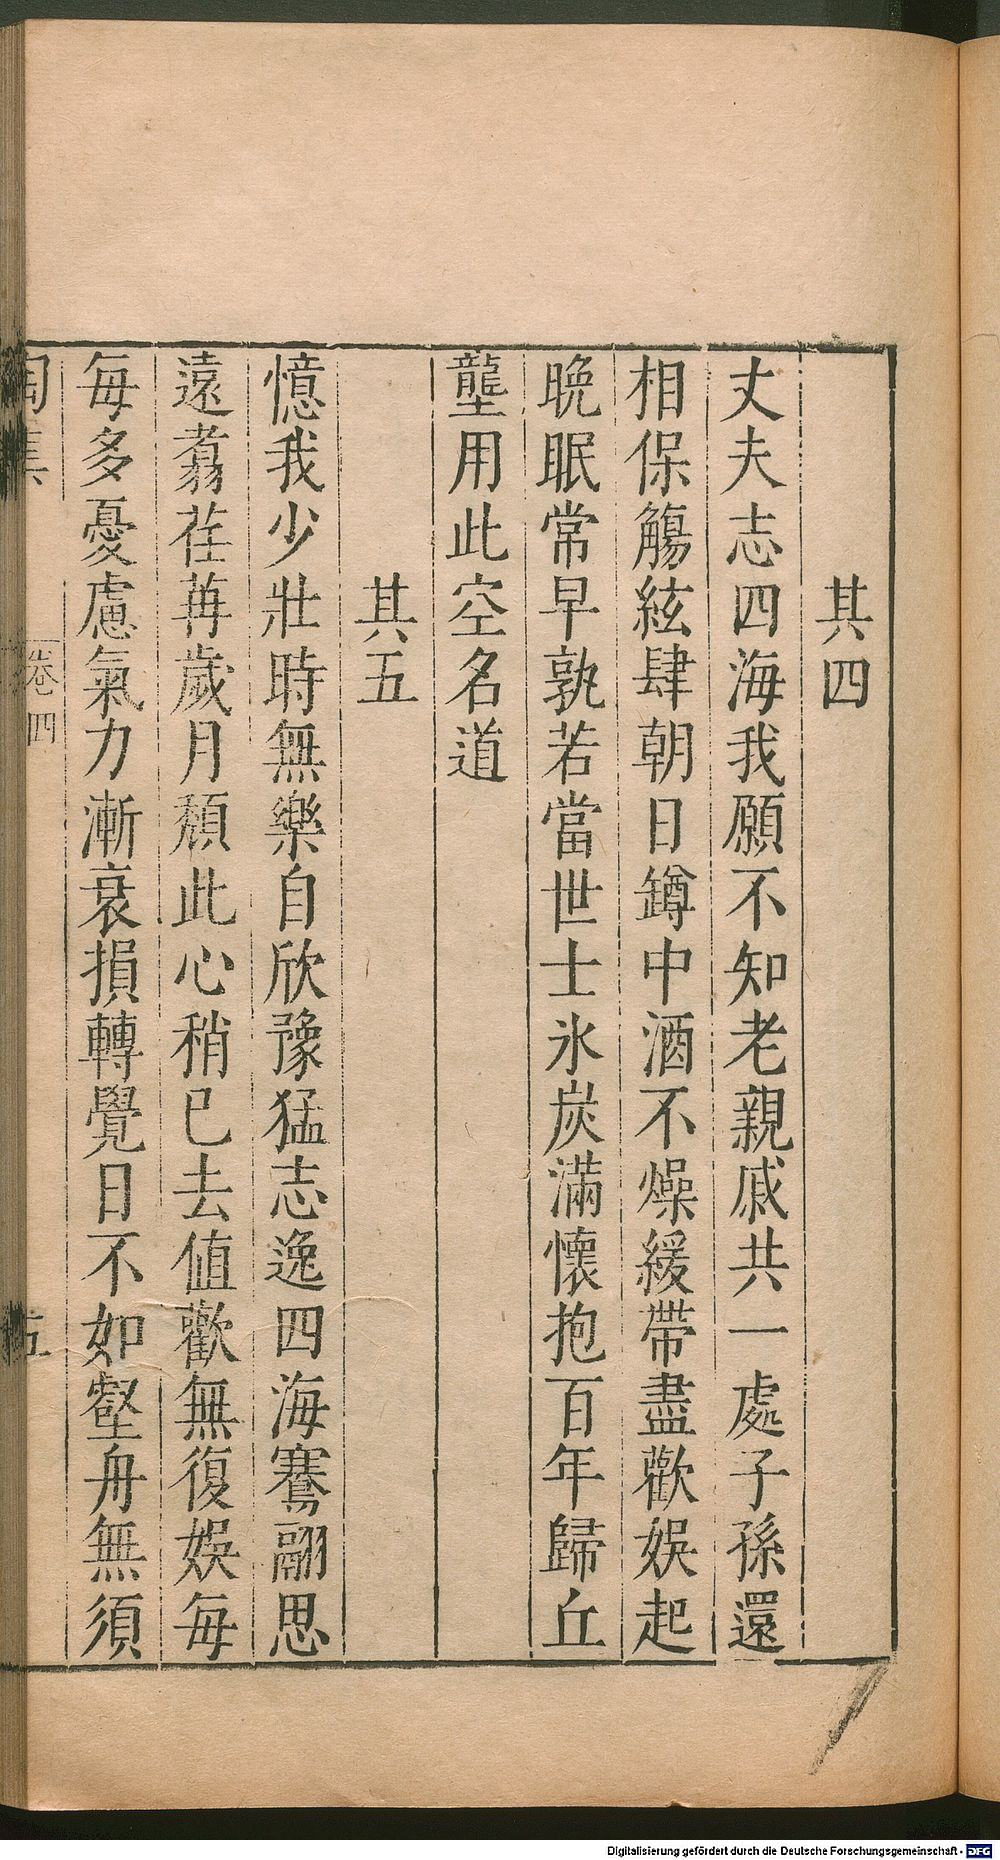 其四
丈夫志四海我願不知老親戚共一處子孫還
相保觴絃肆朝日罇中酒不燥緩帶盡歡娛起
晚眠常早孰若當世士氷炭滿懷抱百年歸丘
壟用此空名道
其五
憶我少壯時無樂自欣豫猛志逸四海騫翮思
遠翥荏苒歲月頹此心稍已去值歡無復娛每
每多憂慮氣力漸衰損轉覺日不如壑舟無須
陶集 卷四 五
Digitalisierung gefördert durch die Deutsche Forschungsgemeinschaft - DFG